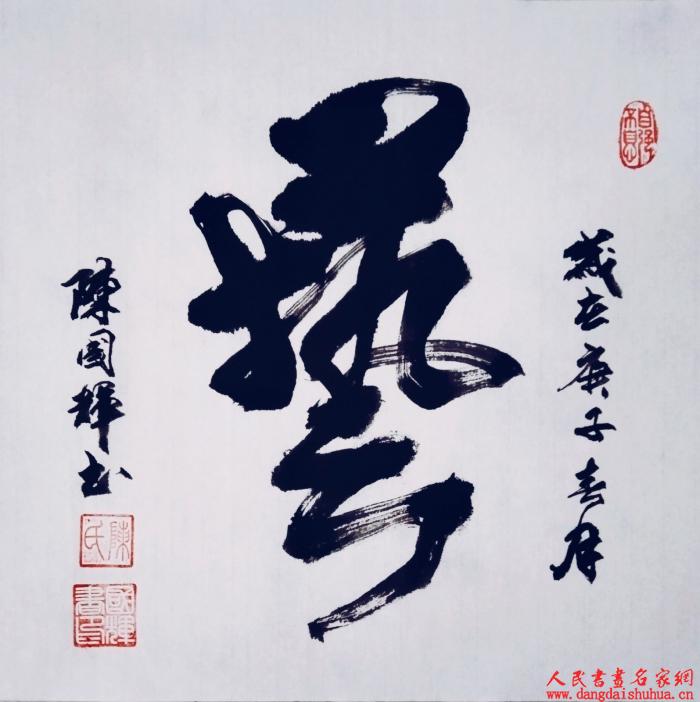 自強不息
歲在庚子春月
藝
陳國輝書
陳氏
國輝書印
人民書畫名家網
www.dangdaishuhua.cn